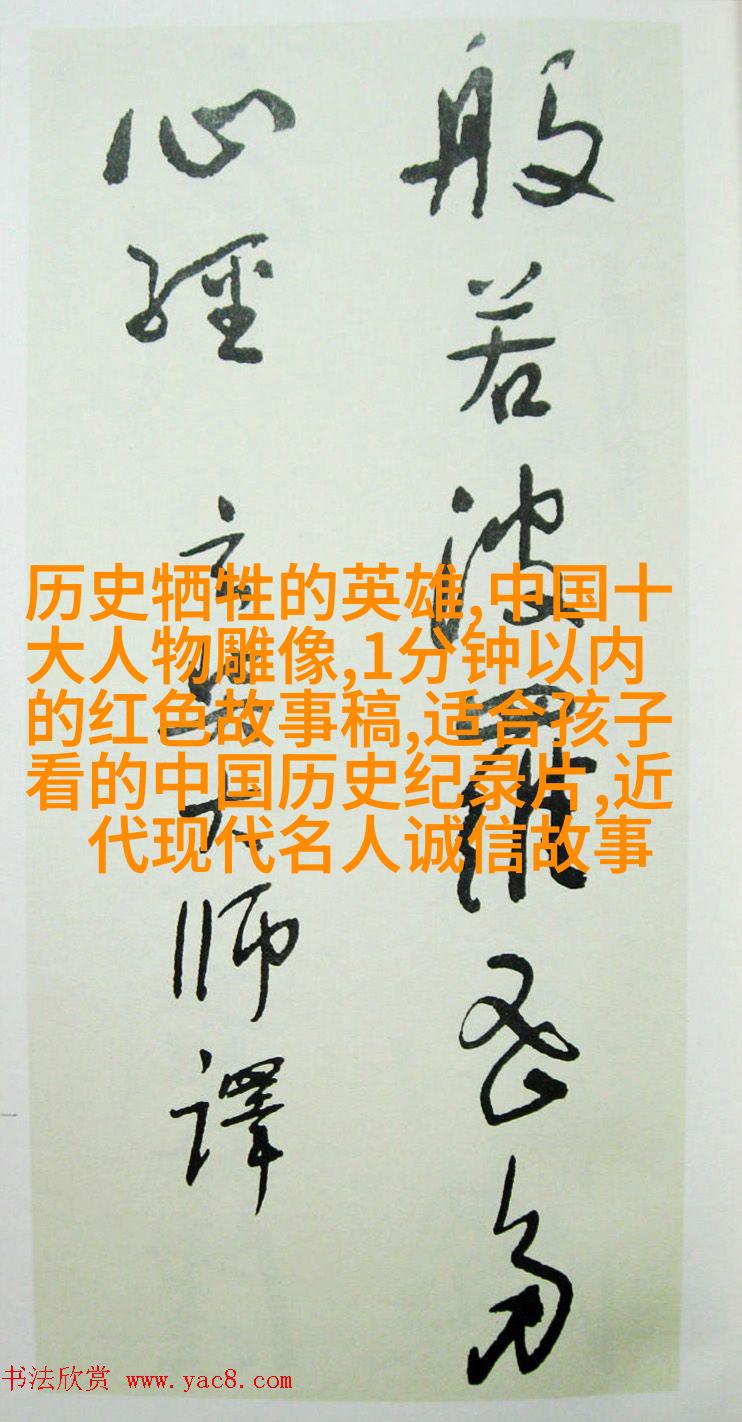 般若波羅蜜多
心經 玄奘大師譯
历史牺牲的英雄,中国十
大人物雕像,1分钟以内
的红色故事稿,适合孩子
看的中国历史纪录片,近
代现代名人诚信故事
书法欣赏 www.yac8.com